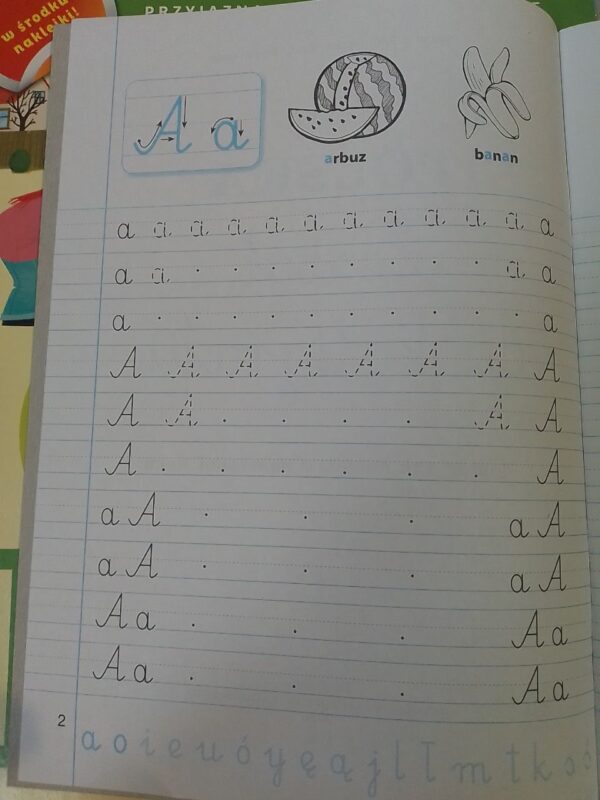 w środku
naklejki!
A a
arbuz
banan
a a a a a a a a a a a a
a a . . . . . . . . a a
a . . . . . . . . . . a
A A A A A A A A
A A . . . . A A
A . . . . . . A
a A . . . a A
a A . . . a A
A a . . . A a
A a . . . A a
2
a o i e u ó y ę ą j l ł m t k